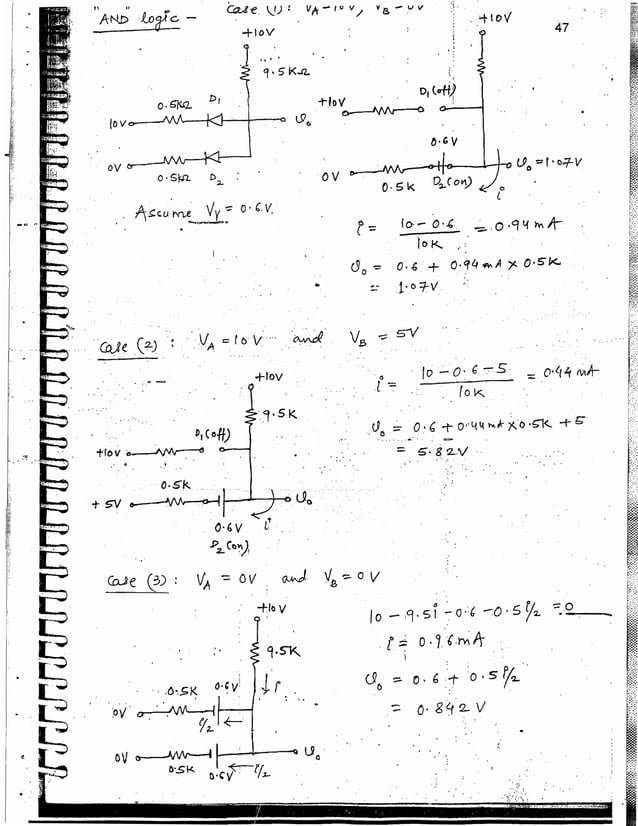 "AND" logic - Case (1): VA = 10V, VB = 0V
47
+10V
9.5KΩ
0.5KΩ D1
10V
υo
0V
0.5KΩ D2
Assume Vγ = 0.6V.
+10V
D1(off)
+10V
0.6V
0V
0.5K D2(on)
υo = 1.07V
i
i = (10 - 0.6)/10K = 0.94mA
υo = 0.6 + 0.94mA × 0.5K
= 1.07V
Case (2): VA = 10V and VB = 5V
+10V
9.5K
D1(off)
+10V
0.5K
+5V
υo
0.6V
i
D2(on)
i = (10 - 0.6 - 5)/10K = 0.44mA
υo = 0.6 + 0.44mA × 0.5K + 5
= 5.82V
Case (3): VA = 0V and VB = 0V
+10V
9.5K
i
0.5K 0.6V
0V
i/2
0V
υo
0.5K 0.6V i/2
10 - 9.5i - 0.6 - 0.5i/2 = 0
i = 0.96mA
υo = 0.6 + 0.5i/2
= 0.842V